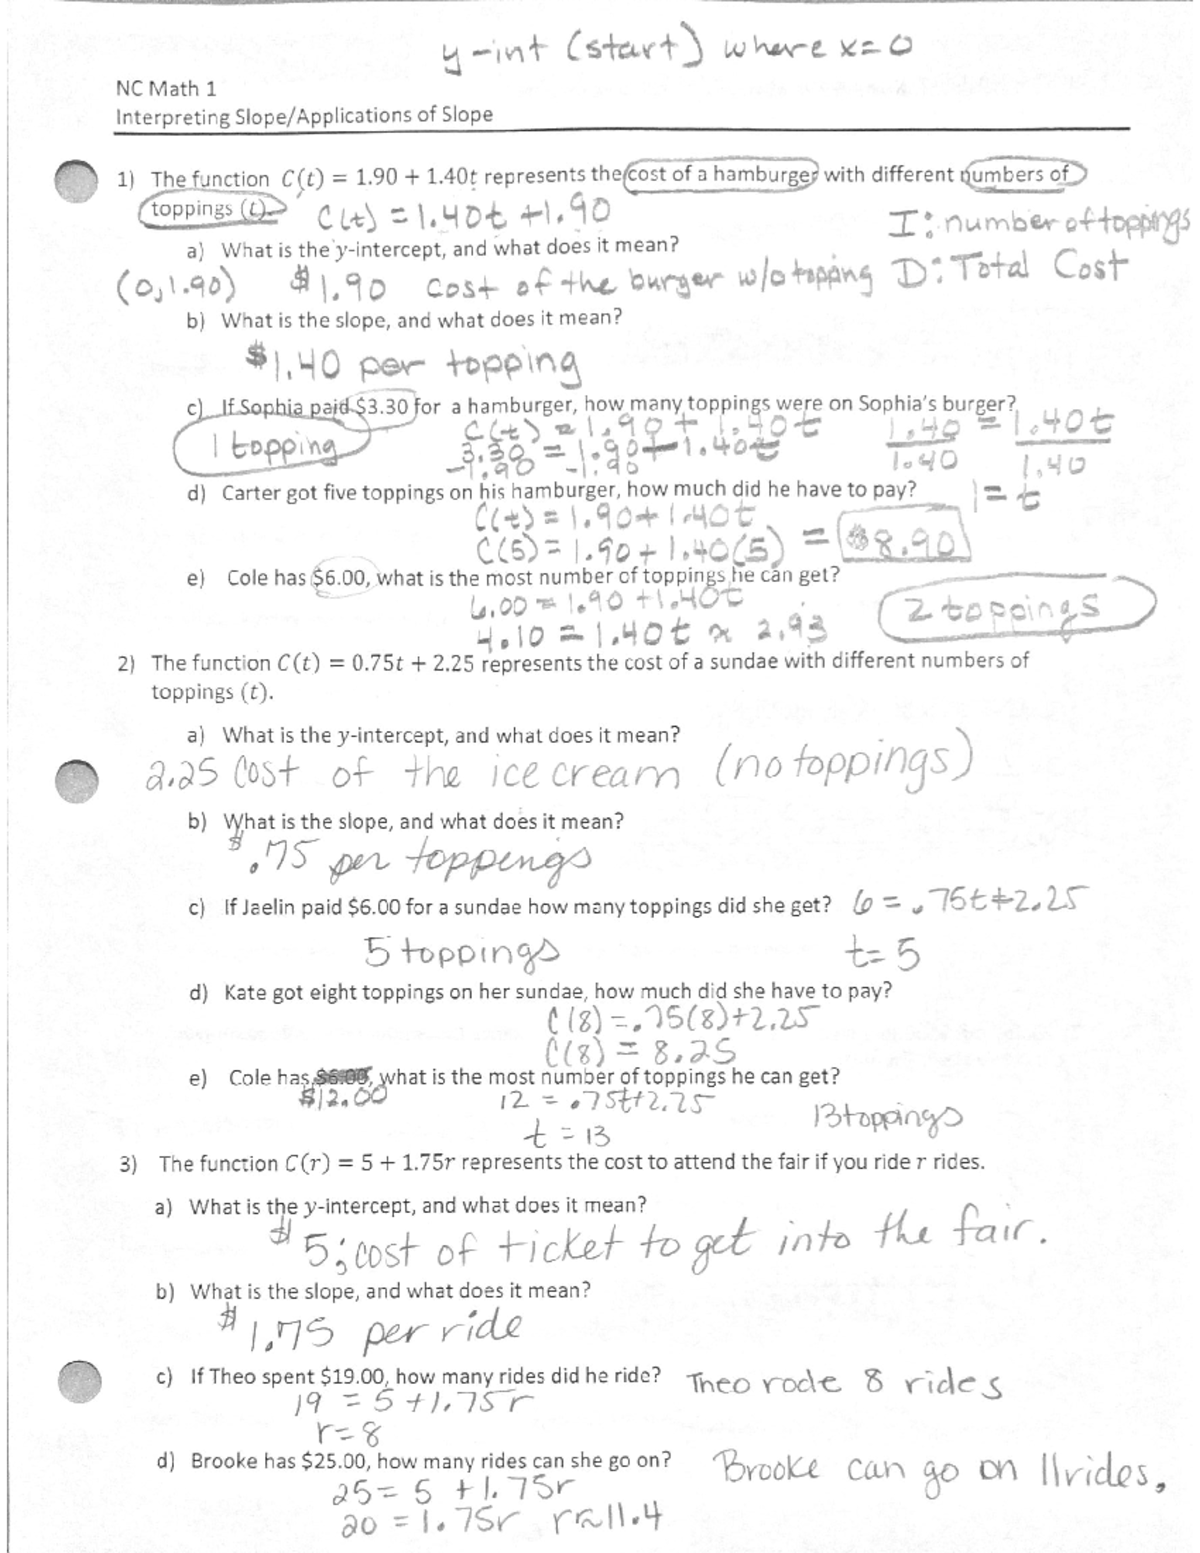 y-int (start) where x=0
NC Math 1
Interpreting Slope/Applications of Slope
1) The function C(t) = 1.90 + 1.40t represents the cost of a hamburger with different numbers of
toppings (t). C(t) = 1.40t + 1.90
I: number of toppings
a) What is the y-intercept, and what does it mean?
(0,1.90) $1.90 cost of the burger w/o topping D: Total Cost
b) What is the slope, and what does it mean?
$1.40 per topping
c) If Sophia paid $3.30 for a hamburger, how many toppings were on Sophia's burger?
1 topping C(t) = 1.90 + 1.40t 1.40 = 1.40t
3.30 = 1.90 + 1.40t 1.40 1.40
-1.90 -1.90
d) Carter got five toppings on his hamburger, how much did he have to pay? 1 = t
C(t) = 1.90 + 1.40t
C(5) = 1.90 + 1.40(5) = $8.90
e) Cole has $6.00, what is the most number of toppings he can get?
6.00 = 1.90 + 1.40t 2 toppings
4.10 = 1.40t ≈ 2.93
2) The function C(t) = 0.75t + 2.25 represents the cost of a sundae with different numbers of
toppings (t).
a) What is the y-intercept, and what does it mean?
2.25 Cost of the ice cream (no toppings)
b) What is the slope, and what does it mean?
$.75 per toppings
c) If Jaelin paid $6.00 for a sundae how many toppings did she get? 6 = .75t+2.25
5 toppings t= 5
d) Kate got eight toppings on her sundae, how much did she have to pay?
C(8) = .75(8)+2.25
C(8) = 8.25
e) Cole has $6.00, what is the most number of toppings he can get?
$12.00 12 = .75t+2.25 13 toppings
t = 13
3) The function C(r) = 5 + 1.75r represents the cost to attend the fair if you ride r rides.
a) What is the y-intercept, and what does it mean?
$5; cost of ticket to get into the fair.
b) What is the slope, and what does it mean?
$1.75 per ride
c) If Theo spent $19.00, how many rides did he ride? Theo rode 8 rides
19 = 5 +1.75r
r=8
d) Brooke has $25.00, how many rides can she go on? Brooke can go on 11 rides.
25= 5 +1.75r
20 = 1.75r r≈11.4